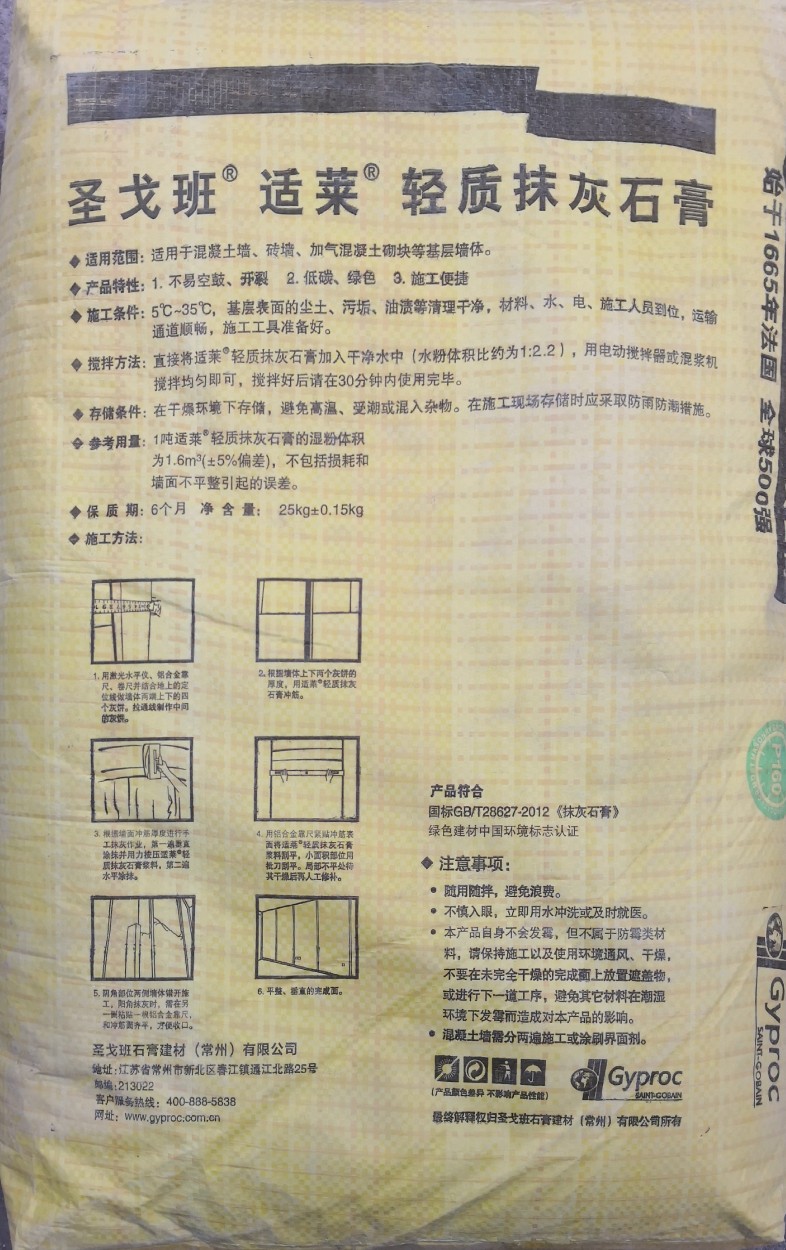 圣戈班® 适莱® 轻质抹灰石膏
◆ 适用范围: 适用于混凝土墙、砖墙、加气混凝土砌块等基层墙体。
◆ 产品特性: 1. 不易空鼓、开裂 2. 低碳、绿色 3. 施工便捷
◆ 施工条件: 5℃~35℃, 基层表面的尘土、污垢、油渍等清理干净, 材料、水、电、施工人员到位, 运输
通道顺畅, 施工工具准备好。
◆ 搅拌方法: 直接将适莱®轻质抹灰石膏加入干净水中 (水粉体积比约为1:2.2), 用电动搅拌器或混浆机
搅拌均匀即可, 搅拌好后请在30分钟内使用完毕。
◆ 存储条件: 在干燥环境下存储, 避免高温、受潮或混入杂物。在施工现场存储时应采取防雨防潮措施。
◆ 参考用量: 1吨适莱®轻质抹灰石膏的湿粉体积
为1.6m³(±5%偏差), 不包括损耗和
墙面不平整引起的误差。
◆ 保 质 期: 6个月 净 含 量: 25kg±0.15kg
◆ 施工方法:
1. 用激光水平仪、铝合金靠
尺、卷尺并结合地上的定
位线做墙体两端上下的四
个灰饼。拉通线制作中间
的灰饼。
2. 根据墙体上下两个灰饼的
厚度, 用适莱®轻质抹灰
石膏冲筋。
3. 根据墙面冲筋厚度进行手
工抹灰作业, 第一遍垂直
涂抹并用力按压适莱®轻
质抹灰石膏浆料, 第二遍
水平涂抹。
4. 用铝合金靠尺紧贴冲筋表
面将适莱®轻质抹灰石膏
浆料刮平, 小面积部位用
批刀刮平。局部不平处待
其干燥后再人工修补。
5. 阴角部位两侧墙体错开施
工, 阳角抹灰时, 需在另
一侧粘贴一根铝合金靠尺,
和冲筋面齐平, 方便收口。
6. 平整、垂直的完成面。
圣戈班石膏建材 (常州) 有限公司
地址: 江苏省常州市新北区春江镇通江北路25号
邮编: 213022
客户服务热线: 400-888-5838
网址: www.gyproc.com.cn
产品符合
国标GB/T28627-2012《抹灰石膏》
绿色建材中国环境标志认证
◆ 注意事项:
• 随用随拌, 避免浪费。
• 不慎入眼, 立即用水冲洗或及时就医。
• 本产品自身不会发霉, 但不属于防霉类材
料, 请保持施工以及使用环境通风、干燥,
不要在未完全干燥的完成面上放置遮盖物,
或进行下一道工序, 避免其它材料在潮湿
环境下发霉而造成对本产品的影响。
• 混凝土墙需分两遍施工或涂刷界面剂。
(产品颜色差异 不影响产品性能)
Gyproc
SAINT-GOBAIN
最终解释权归圣戈班石膏建材 (常州) 有限公司所有
始于1665年法国 全球500强
P160
Gyproc
SAINT-GOBAIN